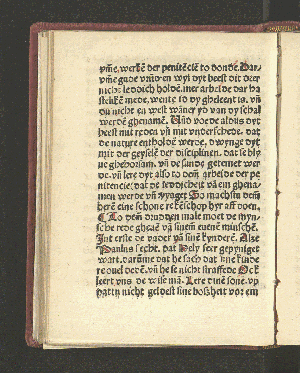 vm̄e, werkē der penitenciē to donde. Dar
vm̄e gude vrūd en wyl dyt beest dit deer
nicht ledich holdē, mer arbeide dar ha
stelikē mede, wente so dy ghelent is. vn̄
du nicht en west wāner yd van dy schal
werdē ghenamē. Vnd voede aldus dyt
beest mit redē vn̄ mit vnderschede. dat
de nature entholdē werde, dwynge dyt
mit der geyselē der disciplinen. dat se bly
ue ghehorsam. vn̄ de sunde getemet wer
de. vn̄ lere dyt also to dem arbeide der pe
nitencie. dat de ledicheit vā em ghena
men werde vn̄ vraget So machstu dem
herē eine schone rekēschop hyr aff doen.
To dem drudden male moet de myn
sche rede gheuē vā sinem euenē minschē.
Int erste de vader vā sinē kynderē. Alse
Paulus secht. dat Hely seer gepyniget
wart. darūme dat he sach dat sine kinde
re ouel dedē. vn̄ he se nicht straffede Ock
leert vns de wise mā. Lere dine sone. vp
dat tu nicht geldest sine boßheit vor em